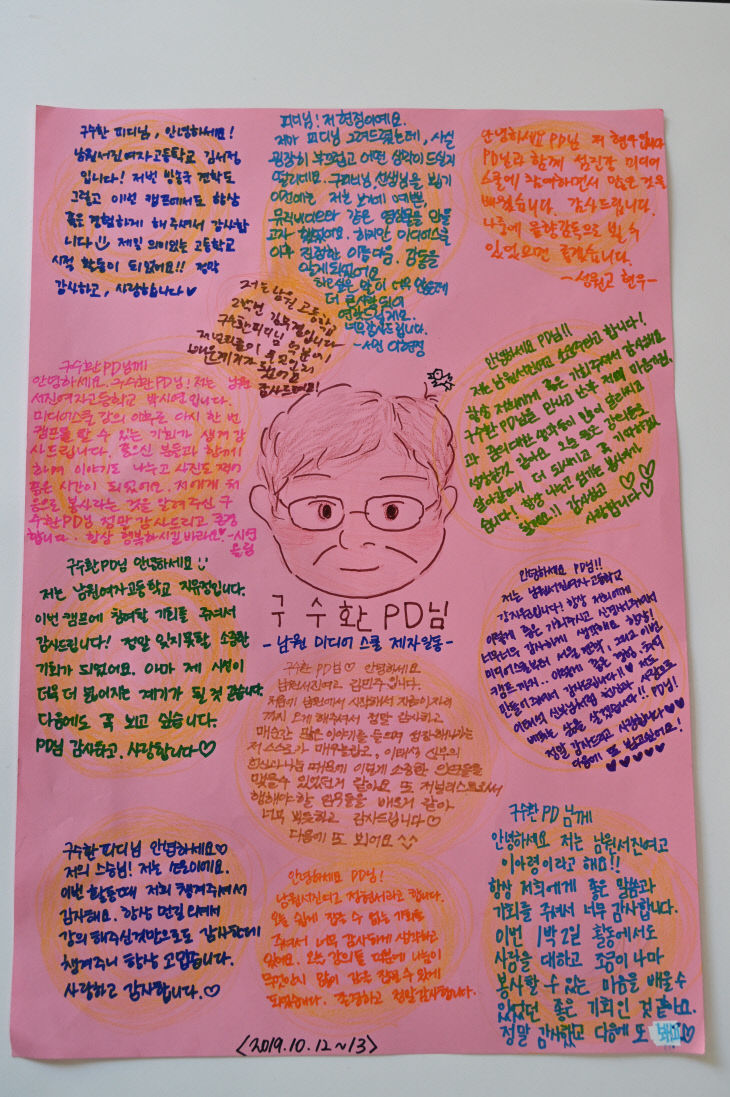 구수환 피디님, 안녕하세요!
남원서진여자고등학교 김서정
입니다! 저번 방송국 견학도
그렇고 이번 캠프에서도 항상
좋은 경험하게 해주셔서 감사합
니다 제일 의미있는 고등학교
시절 활동이 되었어요!! 정말
감사하고, 사랑합니다♡
피디님! 저 현정이에요.
제가 피디님 그려드렸는데, 사실
굉장히 부끄럽고 어떤 생각이 드실지
떨리네요. 구피디님, 선생님을 뵙기
이전에는 저는 보기에 예쁜,
뮤직비디오와 같은 영상을 만들
고자 했었어요. 하지만 미디어스쿨
이후 진정한 아름다움, 감동을
알게 되었어요
하고싶은 말이 너무 많은데
더 큰사람 되어
연락드릴게요.
너무 감사드립니다.
-서연 이현정
안녕하세요 PD님 저 현우입니다
PD님과 함께 섬진강 미디어
스쿨에 참여하면서 많은 것을
배웠습니다. 감사드립니다.
나중에 촬영감독으로 뵐 수
있었으면 좋겠습니다.
-성원고 현우-
저는 남원 고등학교
구수환피디님 덕분에
감사드려요!
구수환PD님께
안녕하세요. 구수환PD님! 저는 남원
서진여자고등학교 박시연입니다.
미디어스쿨 강의 이후로 다시 한 번
캠프를 할 수 있는 기회가 생겨 감
사드립니다. 좋으신 분들과 함께
하며 이야기도 나누고 사진도 찍어
좋은 시간이 되었어요. 저에게 처
음으로 봉사라는 것을 알려주신 구
수환PD님 정말 감사드리고 존경
합니다. 항상 행복하시길 바라요♡-시연
올림
안녕하세요 PD님!!
저는 남원서진여고 소연우라고 합니다!
항상 저희에게 좋은 기회주셔서 감사해요
구수환PD님을 만나고 난 후 저의 마음가짐
감사하고
사랑합니다♡♡♡
구수환PD님 안녕하세요
저는 남원여자고등학교 지유정입니다.
이번 캠프에 참여할 기회를 주셔서
감사드립니다! 정말 잊지못할 소중한
기회가 되었어요. 아마 제 시선이
더욱 더 넓어지는 계기가 될 것 같습니다.
다음에도 꼭 보고 싶습니다.
PD님 감사하고, 사랑합니다♡
구 수 환 PD님
- 남원 미디어 스쿨 제자일동-
안녕하세요 PD님!!
저는 남원서진여자고등학교
강지원입니다! 항상 저희에게
이렇게 좋은 기회주시고 신경써주셔서
너무너무 감사하게 생각하고 있어요! 항상!
캠프까지.. 이렇게 좋은 경험, 추억
만들어주셔서 감사드립니다!♡ 저도
이태석 신부님처럼
베푸는 삶을 살겠습니다!! PD님!
정말 감사드리고 사랑합니다♡♡
다음에 또 뵙고싶어요!
♥♥♥♥♥
구수환 PD님♡ 안녕하세요
남원서진여고 김민주입니다.
처음에 남원에서 시작해서 지금이자리
까지 오게 해주셔서 정말 감사하고
매순간 많은 이야기를 들으며 성장해나가는
저 스스로가 매우놀랍고, 이태석 신부의
헌신과나눔 때문에 이렇게 소중한 인연들을
맺을수 있었던거 같아요 또 저널리스트로서
행해야할 임무들을 배운거 같아
너무 뿌듯하고 감사드립니다♡
다음에 또 뵈어요
구수환피디님 안녕하세요♡
저의 스승님! 저는 선우이에요.
이번 활동때 저희 챙겨주셔서
감사해요. 항상 먼길 오셔서
강의 해주신것만으로도 감사한데
챙겨주니 항상 고맙습니다.
사랑하고 감사합니다.♡
안녕하세요 PD님!
남원서진여고 정현서라고 합니다.
오늘 쉽게 접할 수 없는 기회를
주셔서 너무 감사하게 생각하고
있어요. 오늘 강의를 때문에 나눔이
무엇인지 많이 감을 잡을 수 있게
되었습니다. 존경하고 정말감사합니다.
구수환 PD 님께
안녕하세요 저는 남원서진여고
이아령이라고 해요!!
항상 저희에게 좋은 말씀과
기회를 주셔서 너무 감사합니다.
이번 1박2일 활동에서도
사람을 대하고 조금이나마
봉사할 수 있는 마음을 배울수
있었던 좋은 기회인 것 같아요.
정말 감사했고 다음에 또 봬요♡
<2019.10.12~13>